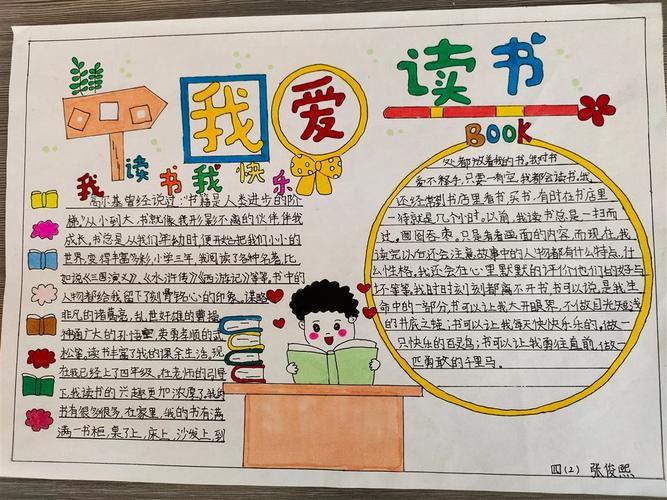 我爱读书
BOOK
我读书我快乐
高尔基曾经说过:“书籍是人类进步的阶
梯。”从小到大,书就像我形影不离的伙伴伴我
成长,书总是从我们年幼时,便开始把我们小小的
世界,变得丰富多彩,小学三年,我阅读了各种名著,比
如说《三国演义》,《水浒传》《西游记》等等,书中的
人物都给我留下了刻骨铭心的印象,谋略
非凡的诸葛亮,乱世奸雄的曹操,
神通广大的孙悟空,英勇孝顺的武
松等,读书丰富了我的课余生活,现
在我已经上了四年级,在老师的引导
下,我读书的兴趣更加浓厚了,我的
书有很多很多,在家里,我的书有满
满一书柜,桌子上,床上,沙发上,到
处都放着我的书,我对书
爱不释手,只要一有空,我都会读书,我
还经常到书店里看书、买书,有时在书店里
一待就是几个时。以前,我读书总是一扫而
过,囫囵吞枣。只是看看画面的内容,而现在,我
读完以后还会注意故事中的人物都有什么特点,什
么性格,我还会在心里默默的评价他们们的好与
坏等等,我时时刻刻都离不开书,书可以说,是我生
命中的一部分,书可以让我大开眼界,不做目光短浅
的书底之蛙;书可以让我每天快快乐乐的,做一
只快乐的百灵鸟;书可以让我勇往直前,做一
匹勇敢的千里马。
四(2) 张俊熙